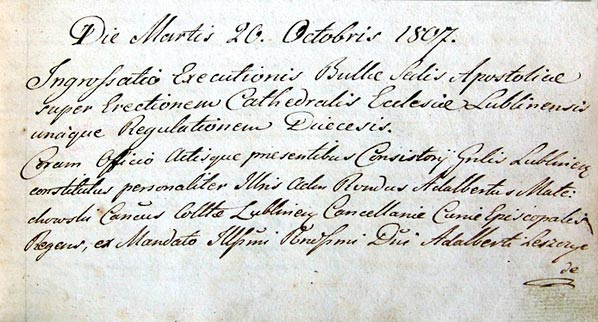 Die Martis 20. Octobris 1807.
Ingrossatio Executionis Bullae Sedis Apostolicae
super Erectionem Cathedralis Ecclesiae Lublinensis
unaque Regulationem Diecesis.
Coram Officio Actisque presentibus Consistorij Gnlis Lublinen
constitutus personaliter Illris Adm Rndus Adalbertus Mate
chowski Cancus Colltae Lublinen Cancellariae Episcopalis
Regens, ex Mandato Illsimi Rndssimi Dni Adalberti Leszczyc
de